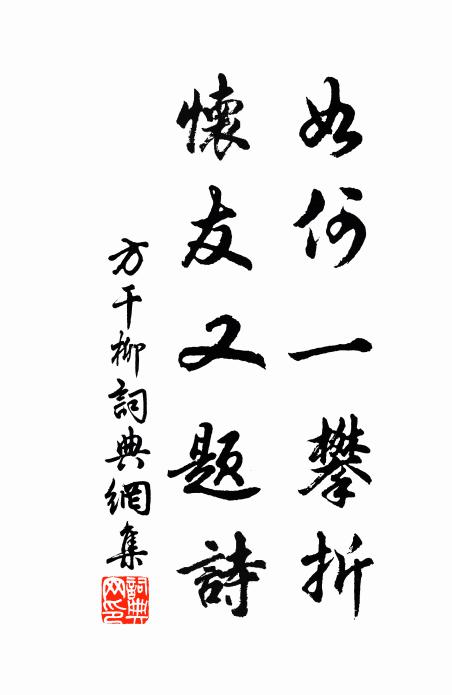 如何一攀折
懷友又題詩
方干柳詞典網集
詞典網印